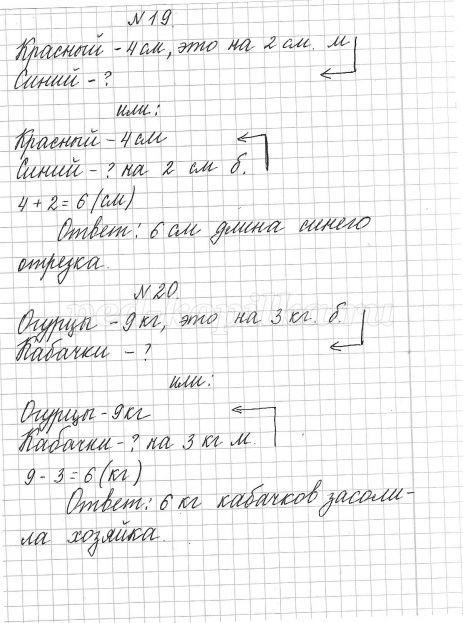 №19.
Красный – 4 см, это на 2 см. м
Синий – ?
или:
Красный – 4 см
Синий – ? на 2 см б.
4 + 2 = 6 (см)
Ответ: 6 см длина синего
отрезка.
№20.
Огурцы – 9 кг, это на 3 кг. б.
Кабачки – ?
или:
Огурцы – 9 кг
Кабачки – ? на 3 кг м.
9 - 3 = 6 (кг)
Ответ: 6 кг кабачков засоли-
ла хозяйка.